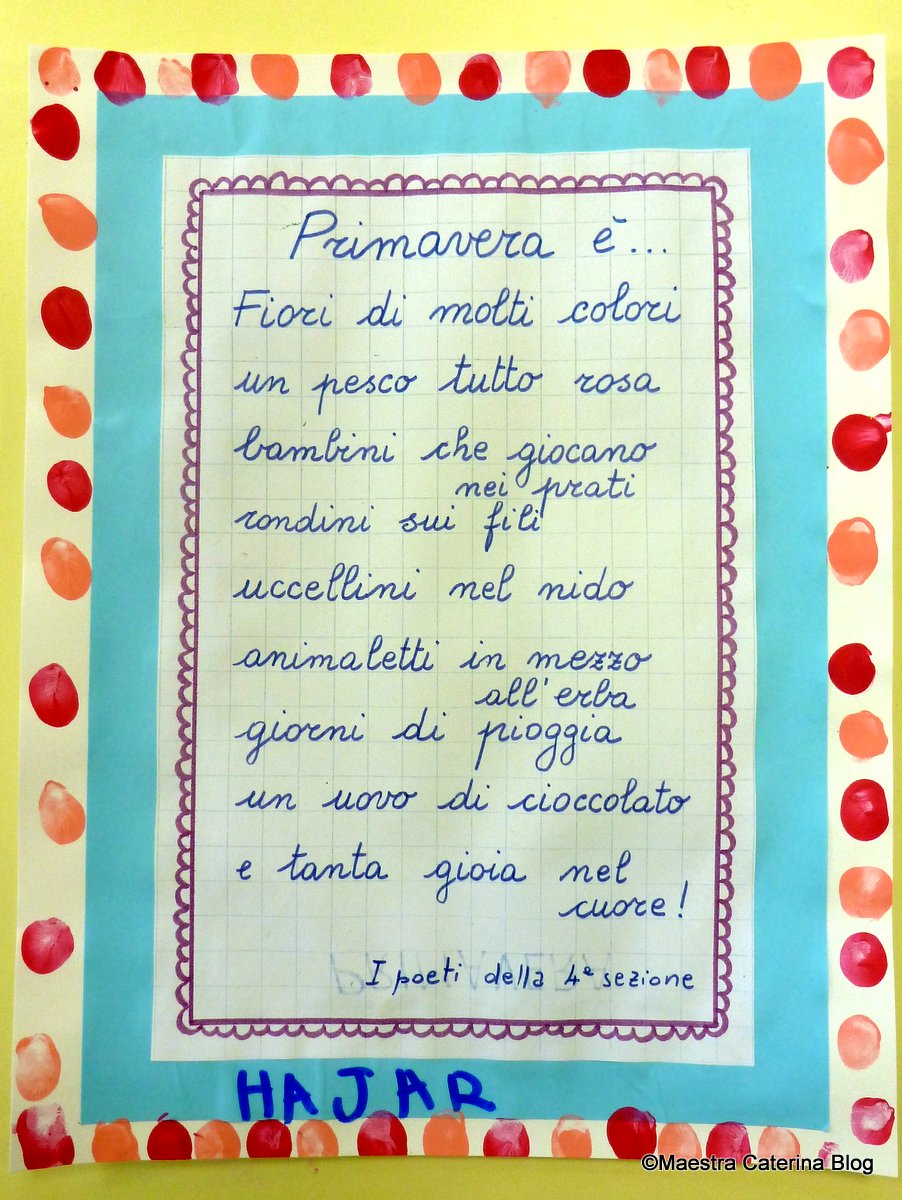 Primavera è...
Fiori di molti colori
un pesco tutto rosa
bambini che giocano
nei prati
rondini sui fili
uccellini nel nido
animaletti in mezzo
all'erba
giorni di pioggia
un uovo di cioccolato
e tanta gioia nel
cuore!
I poeti della 4ª sezione
HAJAR
©Maestra Caterina Blog